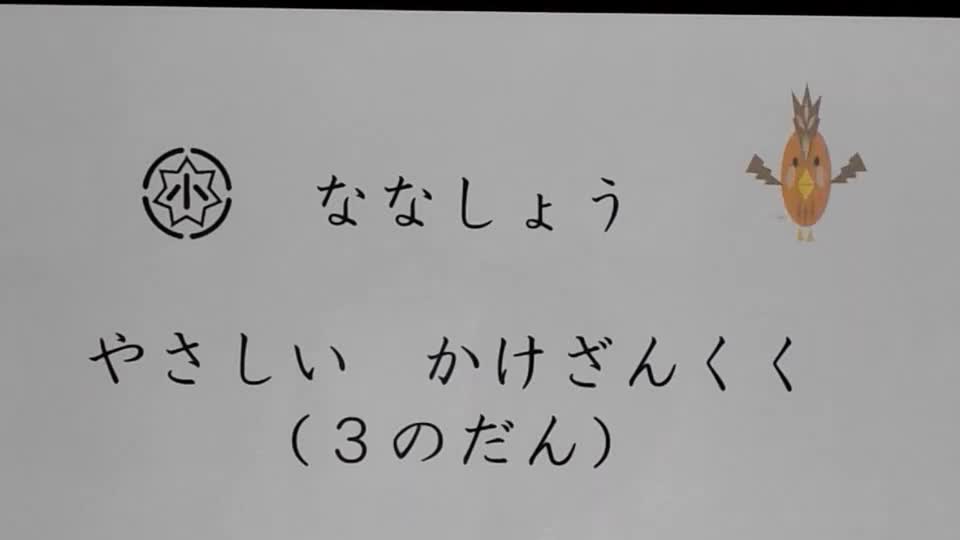 小 ななしょう
やさしい かけざんくく
（３のだん）